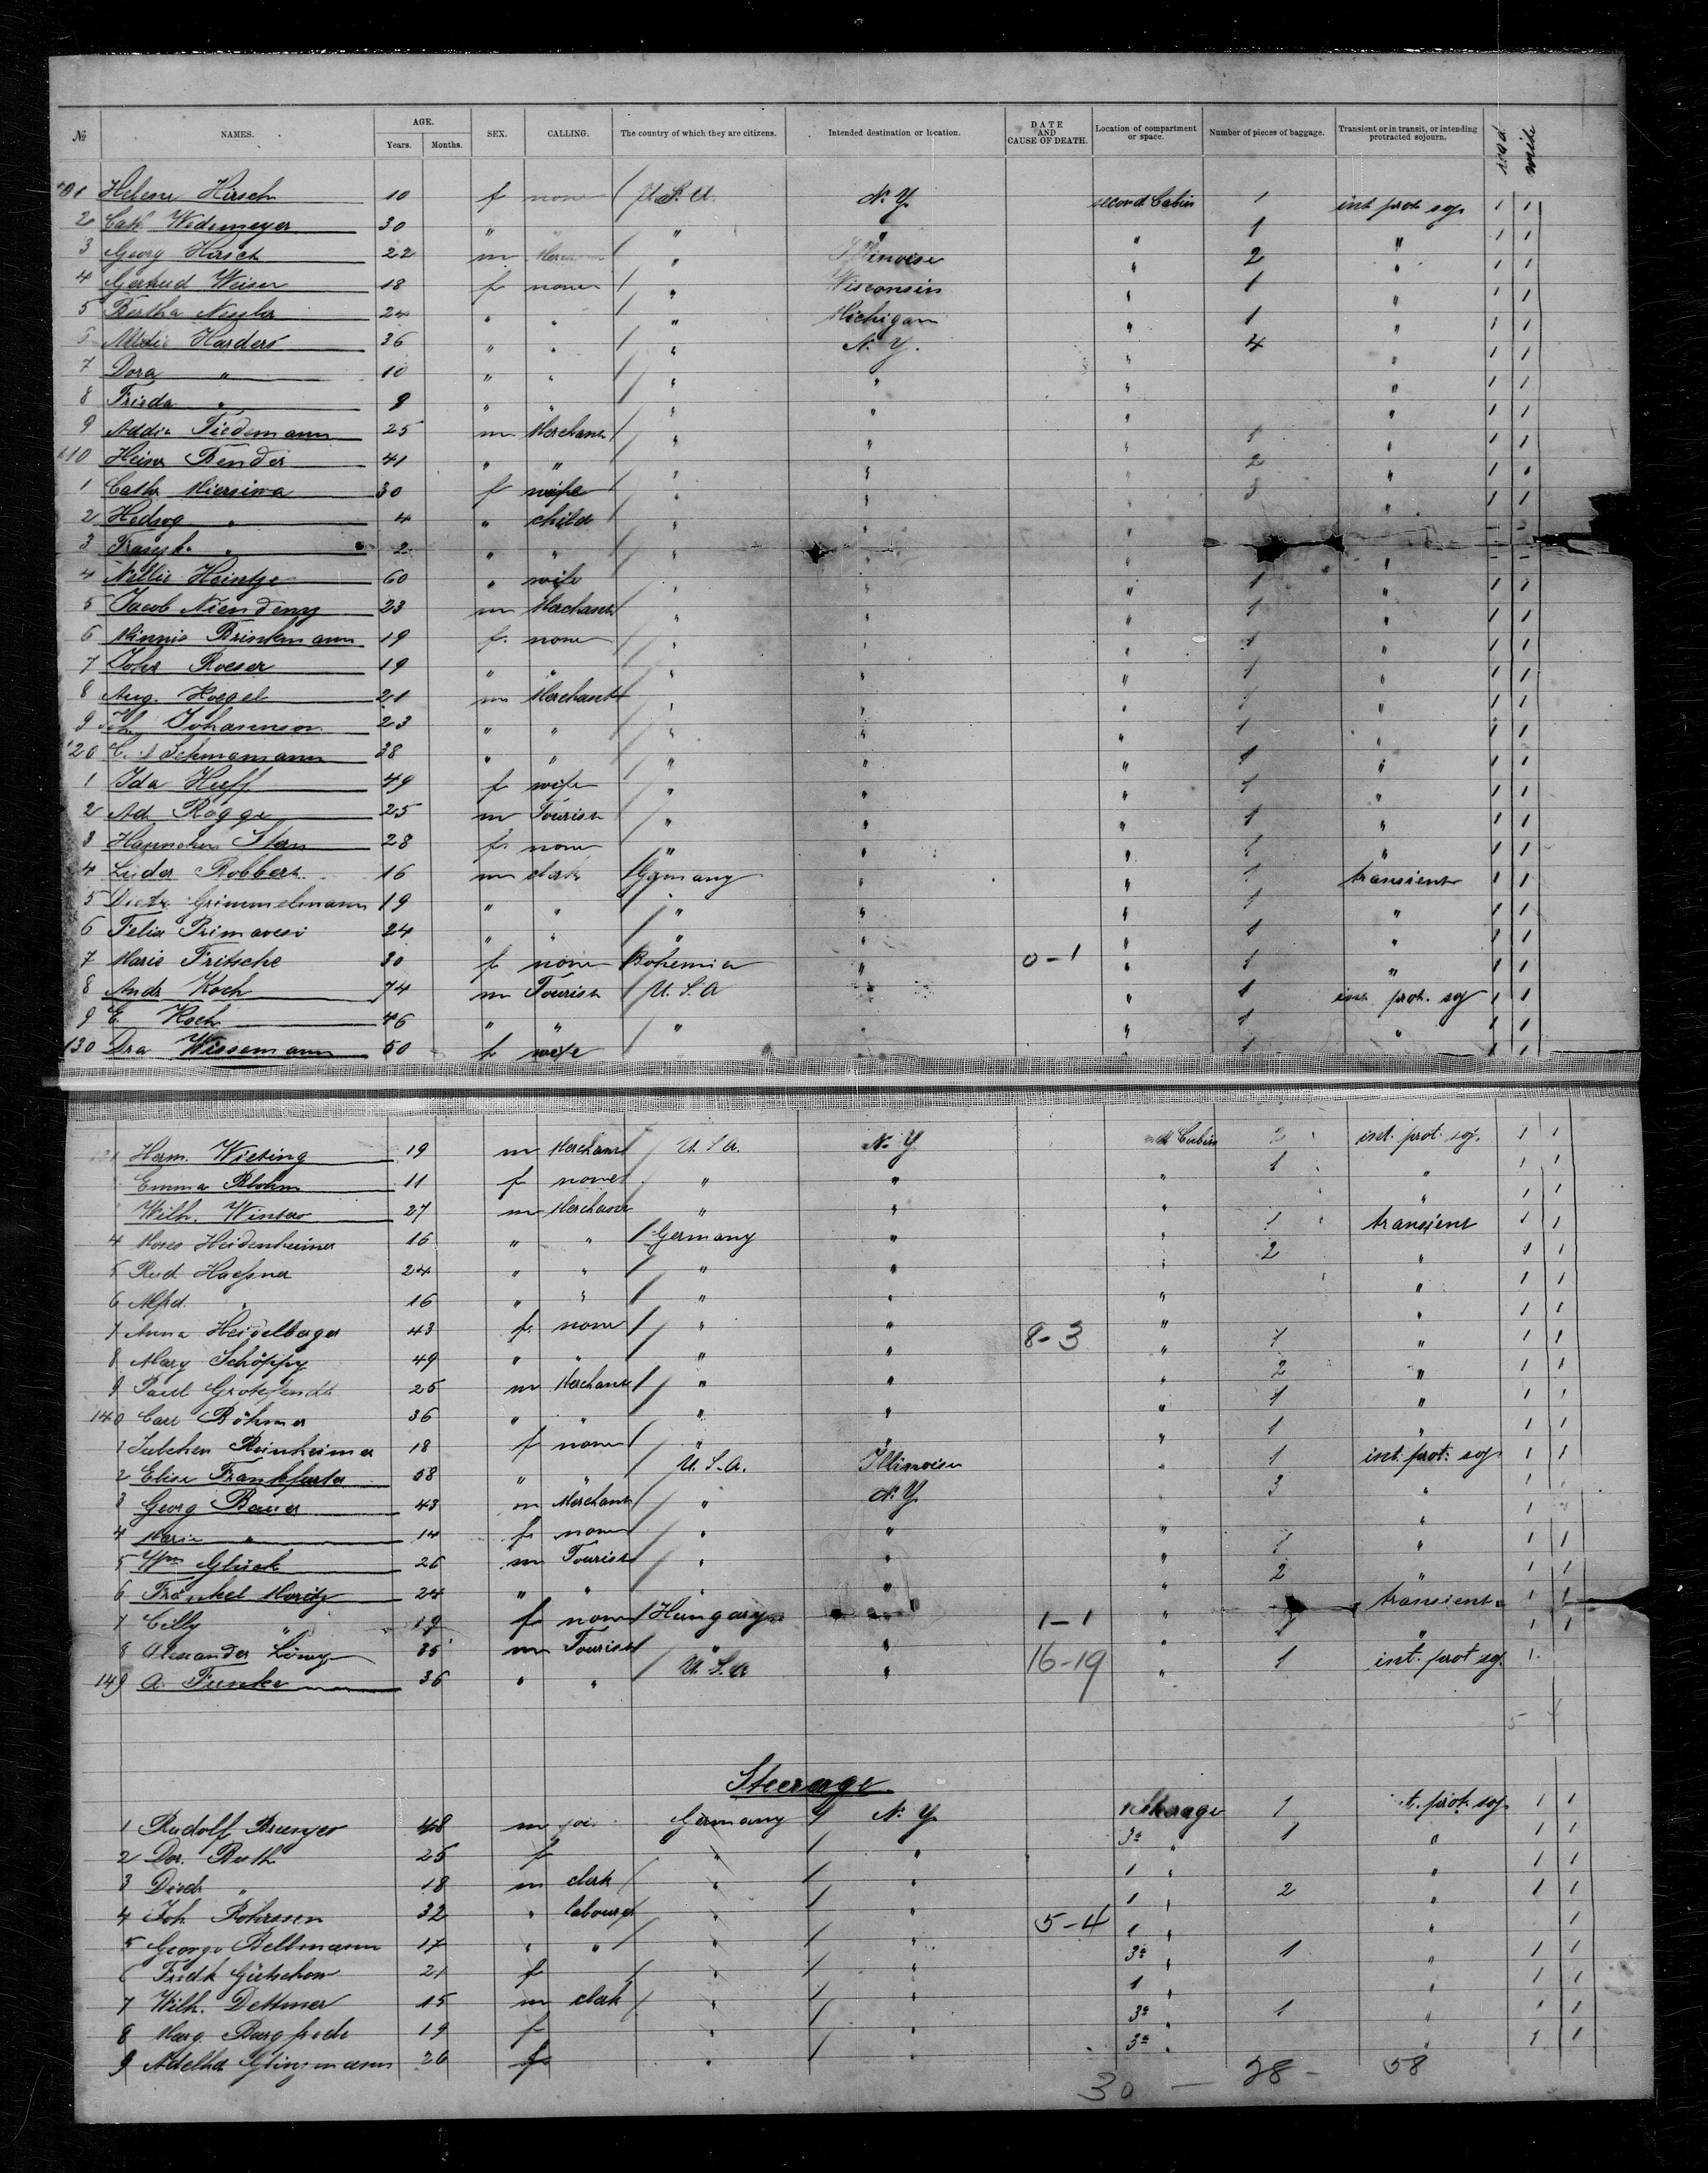 № NAMES. AGE. Years. Months. SEX. CALLING. The country of which they are citizens. Intended destination or location. DATE AND CAUSE OF DEATH. Location of compartment or space. Number of pieces of baggage. Transient or in transit, or intending protracted sojourn. read write
101 Helene Hirsch 10 f none U.S.A. N.Y. second Cabin 1 int prot soj. 1 1
2 Cath Wedemeyer 30 " " " " 1 1 1
3 Georg Hirsch 22 m " Illinoise " 2 " 1 1
4 Gertrud Weiser 18 f none " Wisconsin " 1 " 1 1
5 Bertha 24 " " " Michigan " 1 " 1 1
6 Harders 36 " " " N.Y. " 4 " 1 1
7 Dora " 10 " " " " " " 1 1
8 Frieda " 9 " " " " " " 1 1
9 Tiedemann 25 m Merchant " " " 1 " 1 1
110 Heinr Bender 41 " " " " " 2 " 1 1
1 Cath 30 f wife " " " 3 " 1 1
2 Hedwg " 4 " child " " " - -
3 " 2 " " " " " " - -
4 Nellie Heintze 60 " wife " " " 1 " 1 1
5 Jacob 23 m Merchant " " " 1 " 1 1
6 Minnie Brinkmann 19 f. none " " " 1 " 1 1
7 Roeser 19 " " " " " 1 " 1 1
8 Aug. Koegel 21 m Merchant " " 1 " 1 1
9 Johannson 23 " " " " " 1 " 1 1
120 Schmamann 38 " " " " " 1 " 1 1
1 Ida Huff 49 f wife " " " 1 " 1 1
2 Ad Rogge 25 m Tourist " " " 1 " 1 1
3 Hannchen Stern 28 f. none " " " 1 " 1 1
4 Lüder Robbert 16 m clerk Germany " " 1 transient 1 1
5 Dietr Grimmelmann 19 " " " " " 1 " 1 1
6 Felix Primavesi 24 " " " " " 1 " 1 1
7 Marie Fritsche 30 f none Bohemia " 0-1 " 1 " 1 1
8 Andr Koch 74 m Tourist U.S.A " " 1 int prot. soj 1 1
9 E. Koch 46 " " " " " 1 " 1 1
130 Dra Wissemann 50 f wife 1 1 1
131 Herm. Wieting 19 m Merchant U.S.A. N.Y. Cabin 2 int. prot. soj. 1 1
Emma Blohm 11 f none " " " 1 " 1 1
Wilh. Winters 27 m Merchant " " " " 1 1
4 Moses Heidenheimer 16 " " Germany " " 1 transient 1 1
5 Rud 24 " " " " " 2 " 1 1
6 Alfrd. " 16 " " " " " " 1 1
7 Anna Heidelberger 43 f. none " " 8-3 " " 1 1
8 Mary Schöppy 49 " " " " " 1 " 1 1
9 Paul Grotefendt 25 m Merchant " " " 2 " 1 1
140 Carl Böhmer 36 " " " " " 1 " 1 1
1 Julchen Reinheimer 18 f none " " " 1 " 1 1
2 Elise Frankfurter 58 " " U.S.A. Illinoise " 1 int. prot. soj 1 1
3 Georg Bauer 43 m Merchant " N.Y. 3 " 1 1
4 Marie " 14 f. none " " " " 1
5 Wm Glück 26 m Tourist " " " 1 " 1 1
6 Fränkel Moritz 24 " " " " " 2 " 1 1
7 Cilly " 19 f none Hungary 1-1 " transient 1 1
8 Alexander Löwy 35 m Tourist " " 16-19 " " 1 1
149 A. Funke 36 " " U.S.A " " 1 int. prot soj. 1
Steerage
1 Rudolf Brunjes 48 m Germany N.Y. Steerage 1 prot. soj. 1 1
2 Dor. Buth 25 f " " 3a " 1 " 1 1
3 Diedr " 18 m clerk " " 1 " " 1 1
4 Joh Rohrssen 32 " labourer " " 1 " 2 " 1 1
5 George Bellmann 17 " " " " 5-4 1 " " 1
6 Fredk Gütschow 21 f " " 3a " 1 " 1 1
7 Wilh. Dettmer 15 m clerk " " 1 " " 1 1
8 Marg. Bargfrede 19 f " " 3a " 1 " 1 1
9 Adelha Glinzmann 26 f " " 3a " " 1 1
30 - 28 - 58